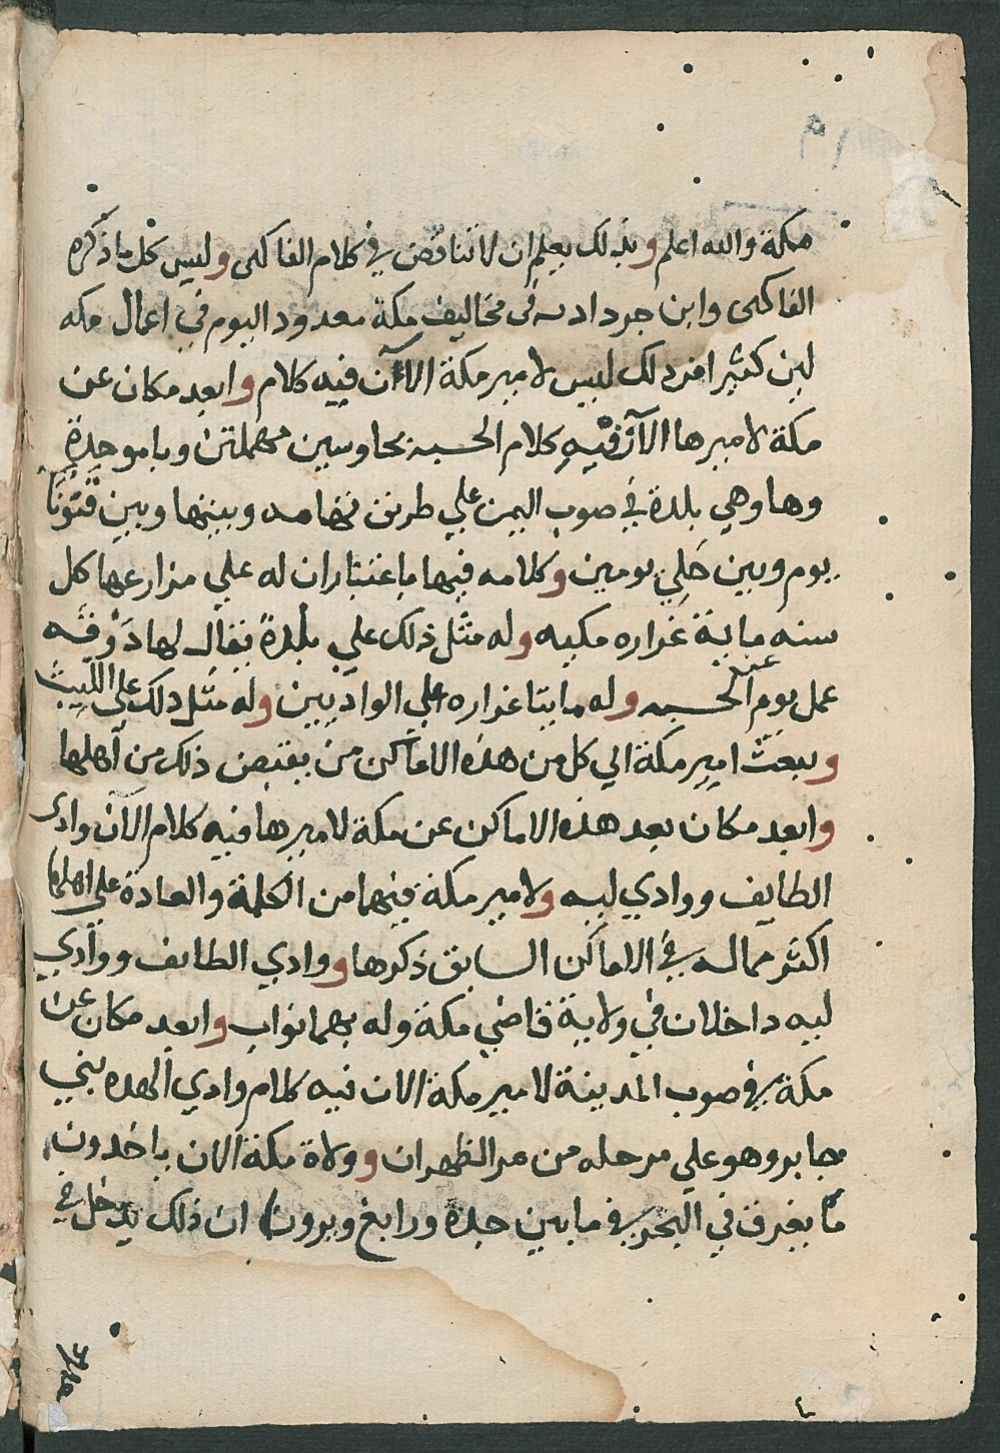 ٣١
مكة والله اعلم وبذلك يعلم ان لا تناقض في كلام الفاكهى وليس كل ما ذكره
الفاكهى وابن جرداد به في مخاليف مكة معدود اليوم في اعمال مكه
لين كثيرا من ذلك ليس لامير مكة الآن فيه كلام وابعد مكان عن
مكة لاميرها الآن فيه كلام الحسبه بحا وسين مهملتين وبا موحدة
وها وهي بلدة في صوب اليمن علي طريق تهامه وبينها وبين قنونا
يوم وبين حَلِي يومين وكلامه فيها باعتبار ان له علي مزارعها كل
سنه ماية غراره مكيه وله مثل ذلك علي بلدة يقال لها دَوقه
عمل يوم عن الحسبه وله مايتا غراره علي الواديين وله مثل ذلك علي الليث
ويبعث امير مكة الي كل من هذه الاماكن من يقبض ذلك من اهلها
وابعد مكان بعد هذه الاماكن عن مكة لاميرها فيه كلام الآن وادى
الطايف ووادي ليه ولامير مكة فيهما من الكلمة والعادة علي اهلها
اكثر مماله في الاماكن السابق ذكرها ووادي الطايف ووادي
ليه داخلان في ولاية قاضي مكة وله بهما نواب وابعد مكان عن
مكة في صوب المدينة لامير مكة الان فيه كلام وادي الهده بني
جابر وهو علي مرحله من مر الظهران وولاة مكة الان ياخدون
ما يغرق في البحر في ما بين جدة ورابغ ويرون ان ذلك يدخل في